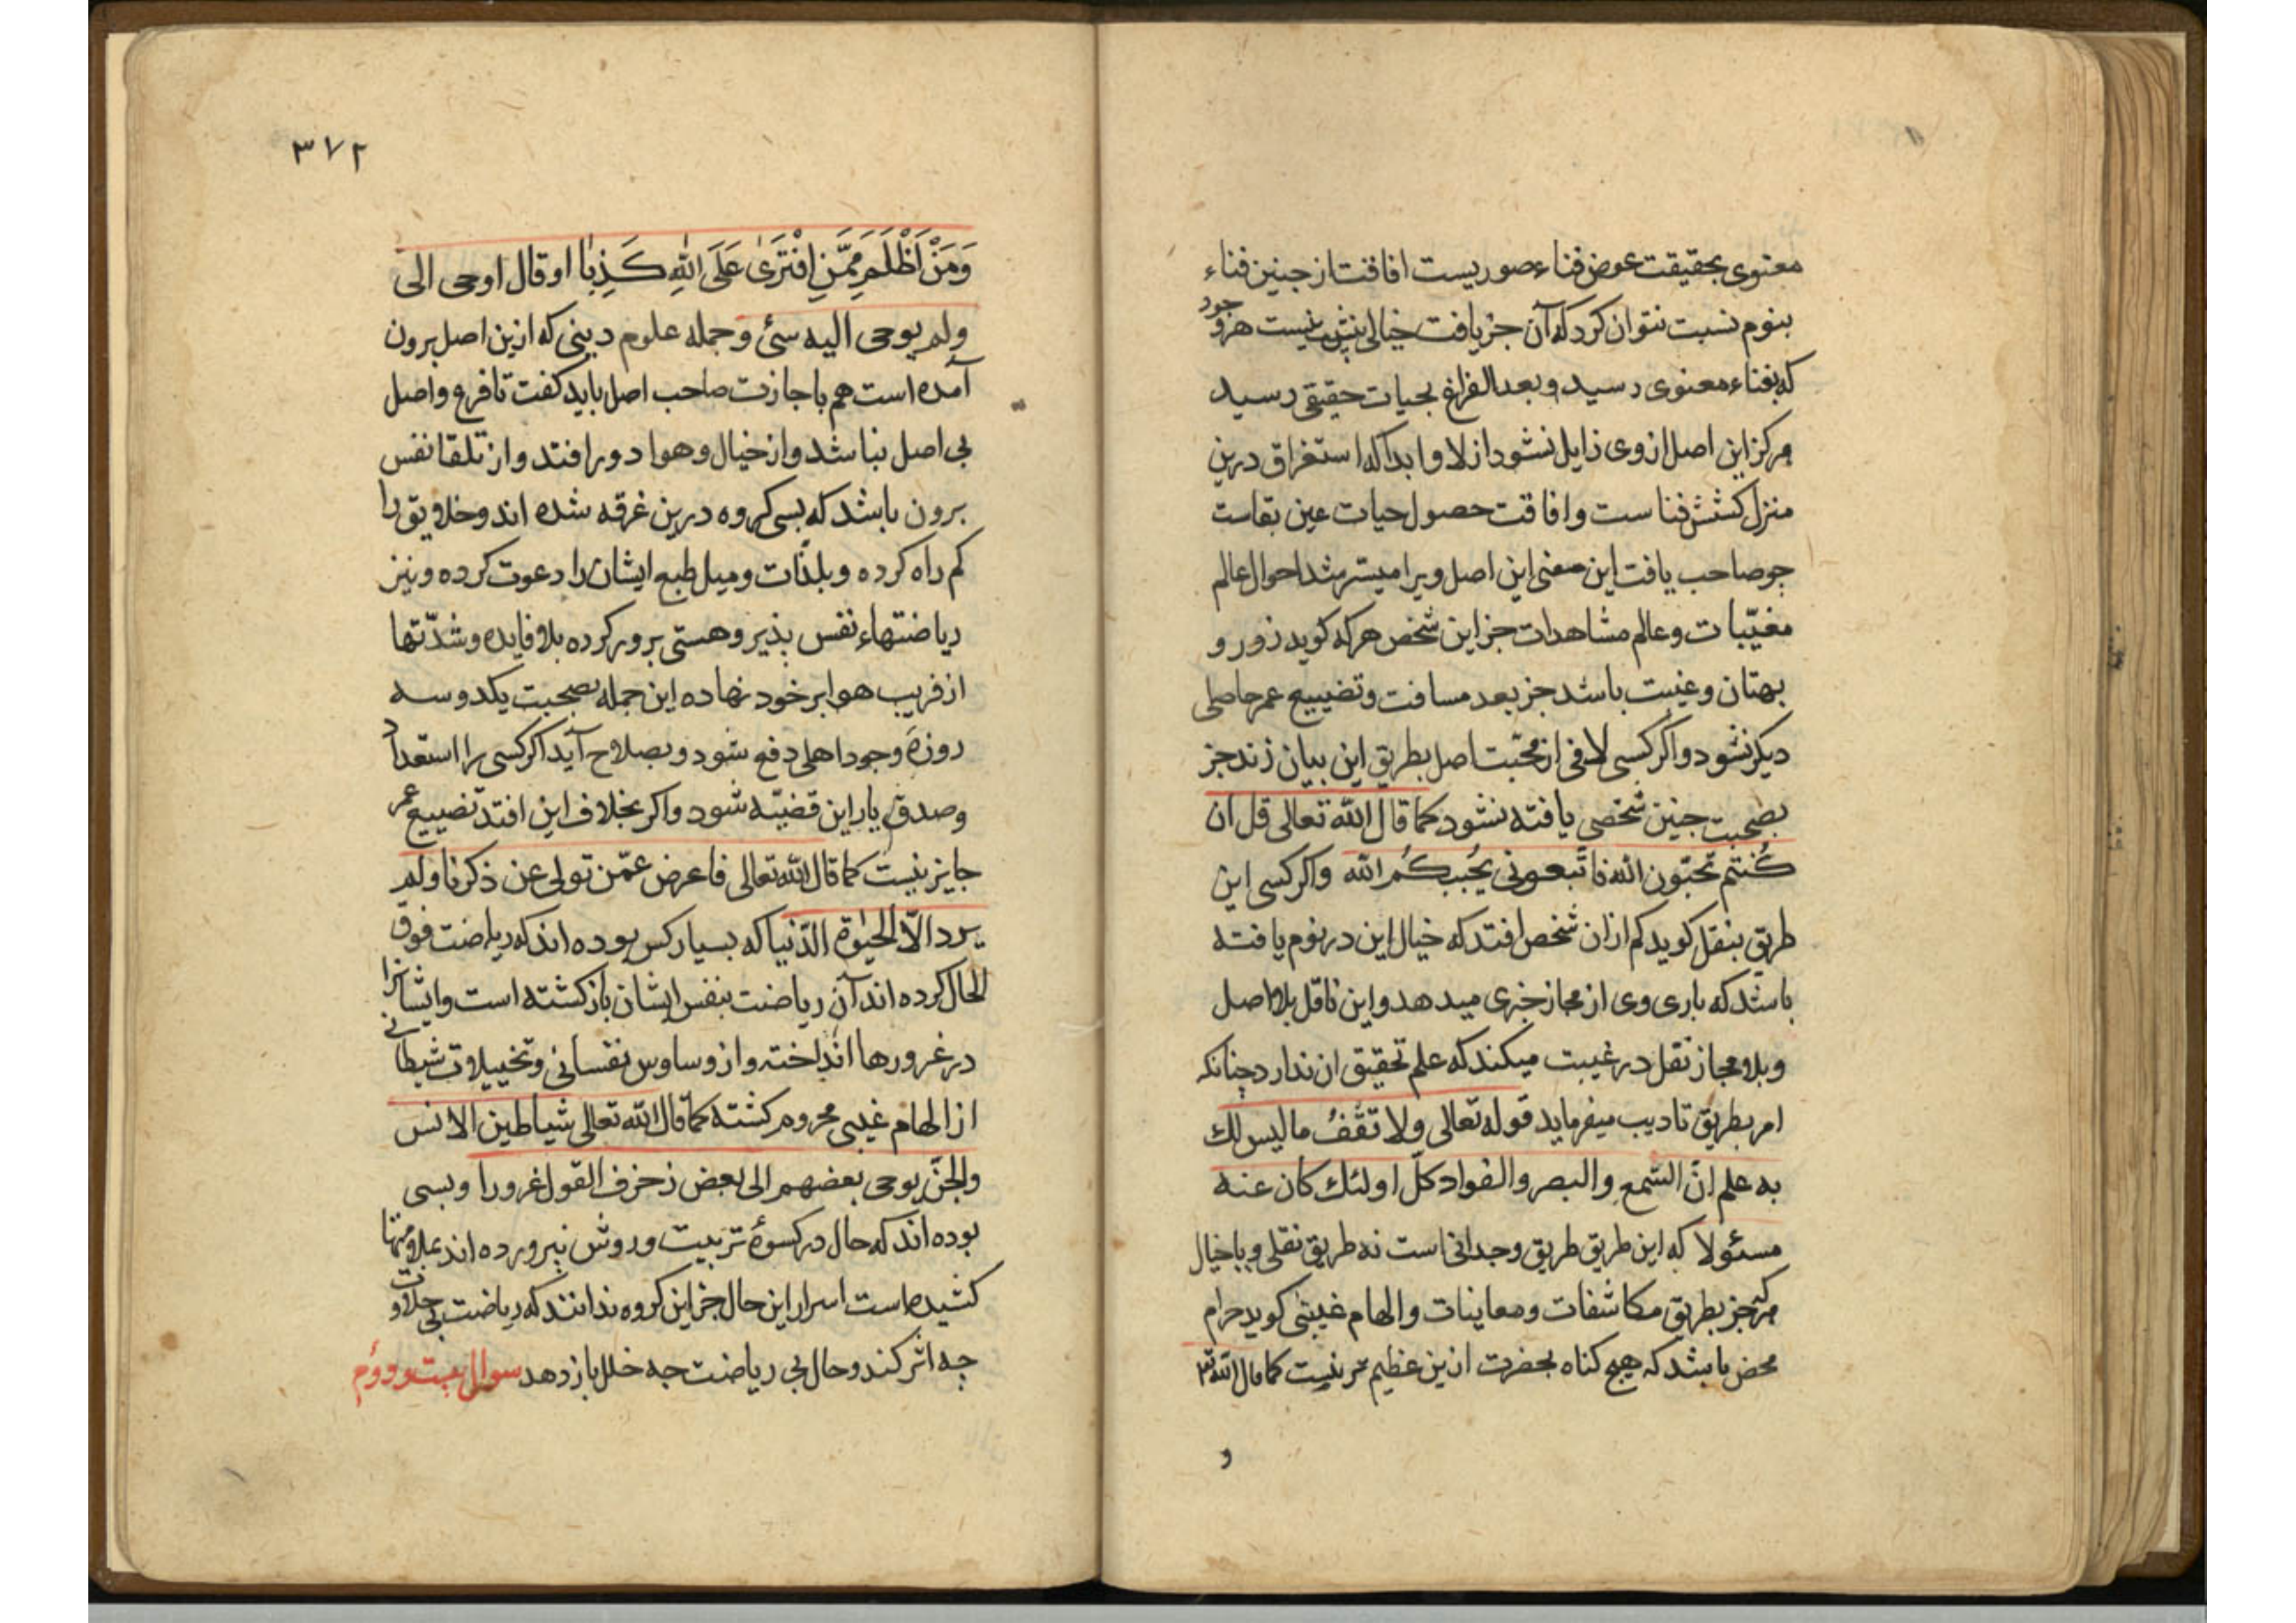 معنوی بحقیقت عوض فناء صوریست افاقت از جنین فناء
بنوم نسبت نتوان کرد که آن جز یافت خیالی بیش نیست هر وجود
که بفناء معنوی رسید و بعد الفراغ بحیات حقیقی رسید
هرکز این اصل از وی زایل نشود ازلا و ابدا که استغراق درین
منزل کشش فناست و افاقت حصول حیات عین بقاست
جو صاحب یافت این معنی این اصل ویرا میسر شد احوال عالم
مغیّبات و عالم مشاهدات جز این شخص هر که کوید زور و
بهتان و غیبت باشد جز بعد مسافت و تضییع عمر حاصلی
دیکر نشود و اکر کسی لافی از محبّت اصل بطریق این بیان زند جز
بصحبت جنین شخصی یافته نشود کما قال الله تعالی قل ان
کُنتم تحبّون الله فاتّبعونی یُحببکُم الله واکر کسی این
طریق بنقل کوید کم ازان شخص افتد که خیال این در نوم یافته
باشد که باری وی از مجاز خبری میدهد و این ناقل بلا اصل
و بلا مجاز نقل در غیبت میکند که علم تحقیق ان ندارد چنانکه
امر بطریق تادیب میفرماید قوله تعالی ولا تقفُ ما لیس لك
به علم انّ السّمع والبصر والفواد کلّ اولئك کان عنه
مسئولا که این طریق طریق وجدانی است نه طریق نقلی و یا خیال
هرکه جز بطریق مکاشفات و معاینات و الهام غیبی کوید حرام
محض باشد که هیج کناه بحضرت ازین عظیم تر نیست کما قال الله تع
و
٣٧٢
وَمَنْ اَظْلَمُ مِمَّنِ افْتَرَیٰ عَلَی اللهِ کَذِبًا او قال اوحی الی
ولم یوحی الیه شئ و جمله علوم دینی که ازین اصل برون
آمده است هم باجازت صاحب اصل باید کفت تا فرع و اصل
بی اصل نباشد و از خیال و هوا دور افتد و از تلقا نفس
برون باشد که بسی کروه درین غرقه شده اند و خلایق را
کم راه کرده و بلذّات و میل طبع ایشان را دعوت کرده و نیز
ریاضتهاء نفس پذیر و هستی پرور کرده بلا فایده و شدّتها
از فریب هوا بر خود نهاده این جمله بصحبت یکدو سه
روزهٔ وجود اهلی دفع شود و بصلاح آید اکر کسی را استعداد
و صدق یار این قضیّه شود و اکر بخلاف این افتد تضییع عمر
جایز نیست کما قال الله تعالی فاعرض عمّن تولی عن ذکرنا ولم
یرد الّا الحیٰوة الدّنیا که بسیار کس بوده اند که ریاضت فوق
الحال کرده اند آن ریاضت بنفس ایشان باز کشته است و ایشانرا
در غرورها انداخته و از وساوس نفسانی و تخییلات شیطانی
از الهام غیبی محروم کشته کما قال الله تعالی شیاطین الانس
والجنّ یوحی بعضهم الی بعض زخرف القول غرورا و بسی
بوده اند که حال در کسوهٔ تربیت و روش نپرورده اند ملامتها
کشیده است اسرار این حال جز این کروه ندانند که ریاضت بی حلاوت
چه اثر کند و حال بی ریاضت جه خلل باز دهد سوال بیست و دوّم